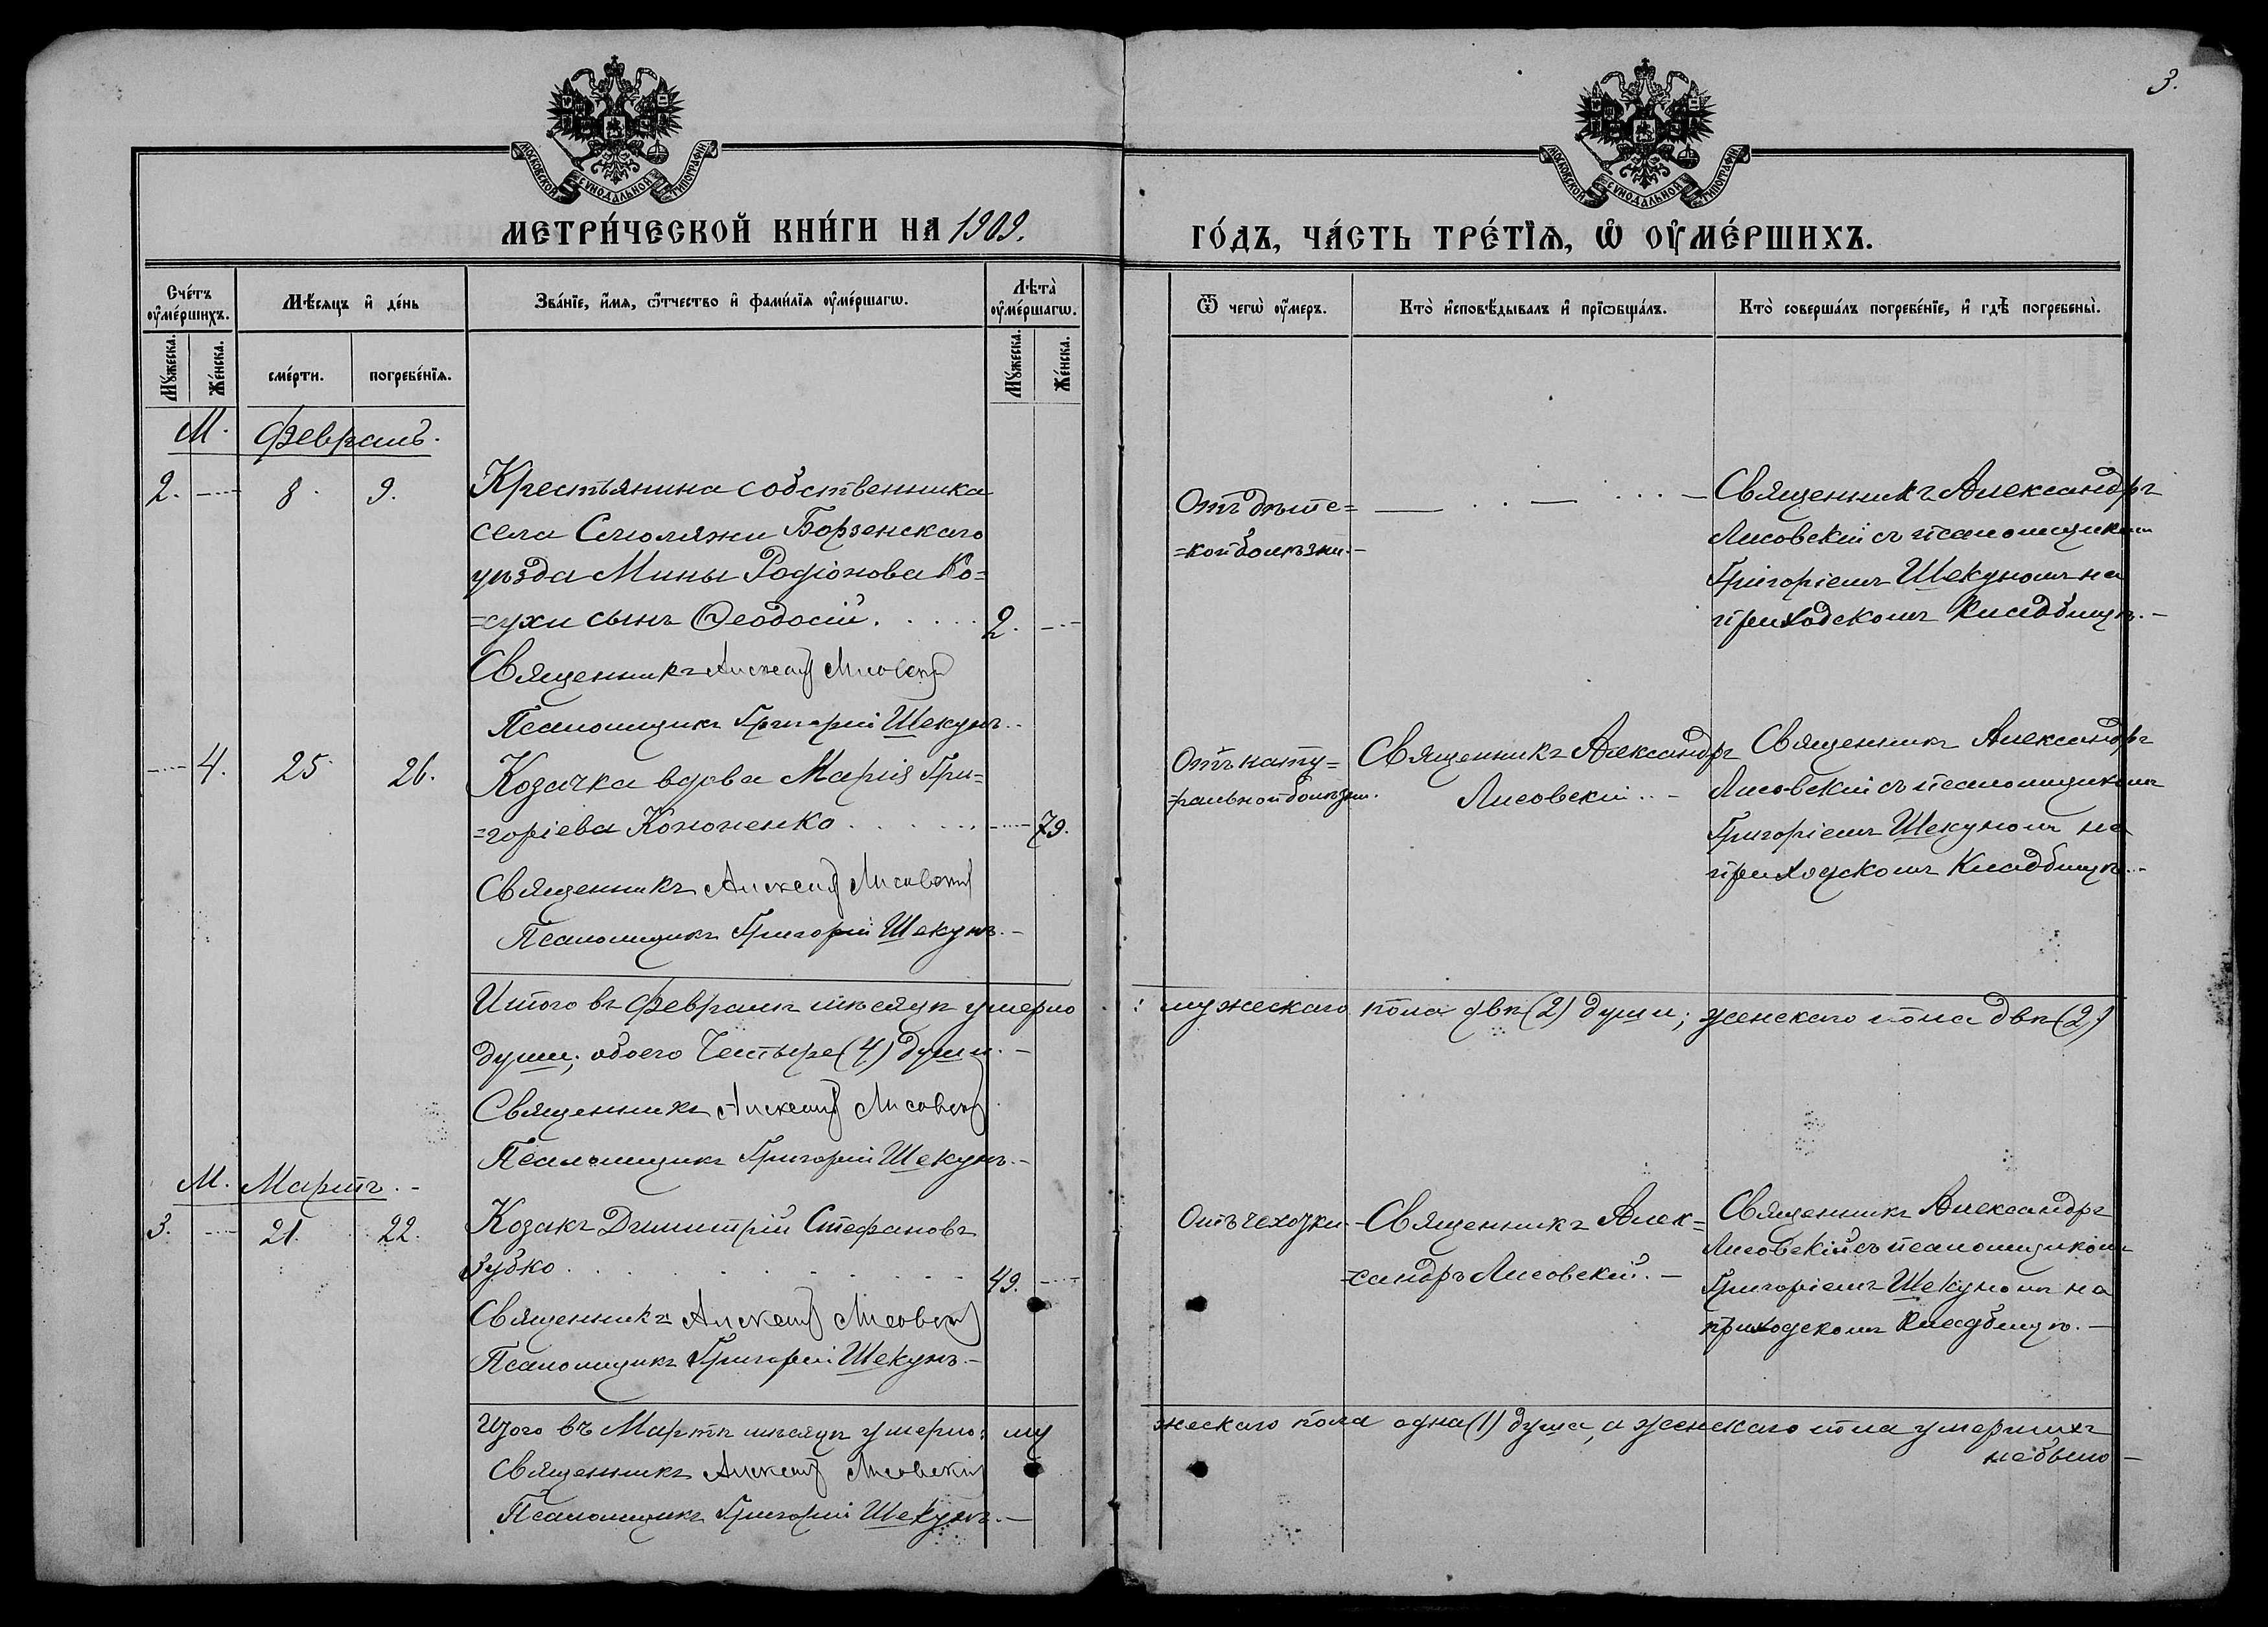 3.
МОСКОВСКОЙ СѴНОДАЛЬНОЙ ТИПОГРАФІИ
МОСКОВСКОЙ СѴНОДАЛЬНОЙ ТИПОГРАФІИ
МЕТРИ́ЧЕСКОЙ КНИ́ГИ НА 1909.
ГО́ДЪ, ЧА́СТЬ ТРЕ́ТЇѦ, Ѽ ОУ҆МЕ́РШИХЪ.
Сче́тъ оу҆ме́ршихъ.
Мѣ́сяцъ и҆ де́нь
Зва́нїе, и҆́мя, ѻ҆́тчество и҆ фами́лїя оу҆ме́ршагѡ.
Лѣта̀ оу҆ме́ршагѡ.
Ѿ чегѡ̀ оу҆́меръ.
Кто̀ и҆сповѣ́дывалъ и҆ прїѻбща́лъ.
Кто̀ соверша́лъ погребе́нїе, и҆ гдѣ̀ погребены̀.
Му́жеска.
Же́нска.
сме́рти.
погребе́нїя.
Му́жеска.
Же́нска.
М. Февраль.
2. — 8. 9.
Крестьянина собственника
села Смоляжи Борзенскаго
уѣзда Мины Родіонова Ко=
=сухи сынъ Ѳеодосій. 2. —
Священникъ Александръ Лисовскій
Псаломщикъ Григорій Шекунъ.
Отъ дѣтс=
=кой болѣзни.—
Священникъ Александръ
Лисовскій съ псаломщикомъ
Григоріемъ Шекуномъ на
приходскомъ кладбищѣ.—
— 4. 25. 26.
Козачка вдова Марія Гри=
=горіева Кононенко — 79.
Священникъ Александръ Лисовскій
Псаломщикъ Григорій Шекунъ.—
Отъ нату=
=ральной болѣзни.
Священникъ Александръ
Лисовскій.—
Священникъ Александръ
Лисовскій съ псаломщикомъ
Григоріемъ Шекуномъ на
приходскомъ кладбищѣ.—
Итого въ Февралѣ мѣсяцѣ умерло : мужескаго пола двѣ (2) души; женскаго пола двѣ (2)
души; обоего Четыре (4) души.—
Священникъ Александръ Лисовскій
Псаломщикъ Григорій Шекунъ.—
М. Мартъ.—
3. — 21. 22.
Козакъ Димитрій Стефановъ
Зубко 49. —
Священникъ Александръ Лисовскій
Псаломщикъ Григорій Шекунъ.—
Отъ чехотки.—
Священникъ Алек=
=сандръ Лисовскій.—
Священникъ Александръ
Лисовскій съ псаломщикомъ
Григоріемъ Шекуномъ на
приходскомъ кладбищѣ.—
Итого въ Мартѣ мѣсяцѣ умерло: мужескаго пола одна (1) душа, а женскаго пола умершихъ
небыло—
Священникъ Александръ Лисовскій
Псаломщикъ Григорій Шекунъ.—